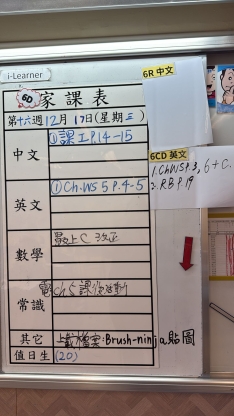 i-Learner
6D
家課表
第十六週12月17日(星期三)
中文
①課工P.14-15
英文
①Ch.WS 5 P.4-5
數學
常識
其它
上載檔案:Brush-ninja貼圖
值日生
(20)
6R 中文
6CD 英文
1.Ch.WS P.3, 6+C.
2.RB P.19